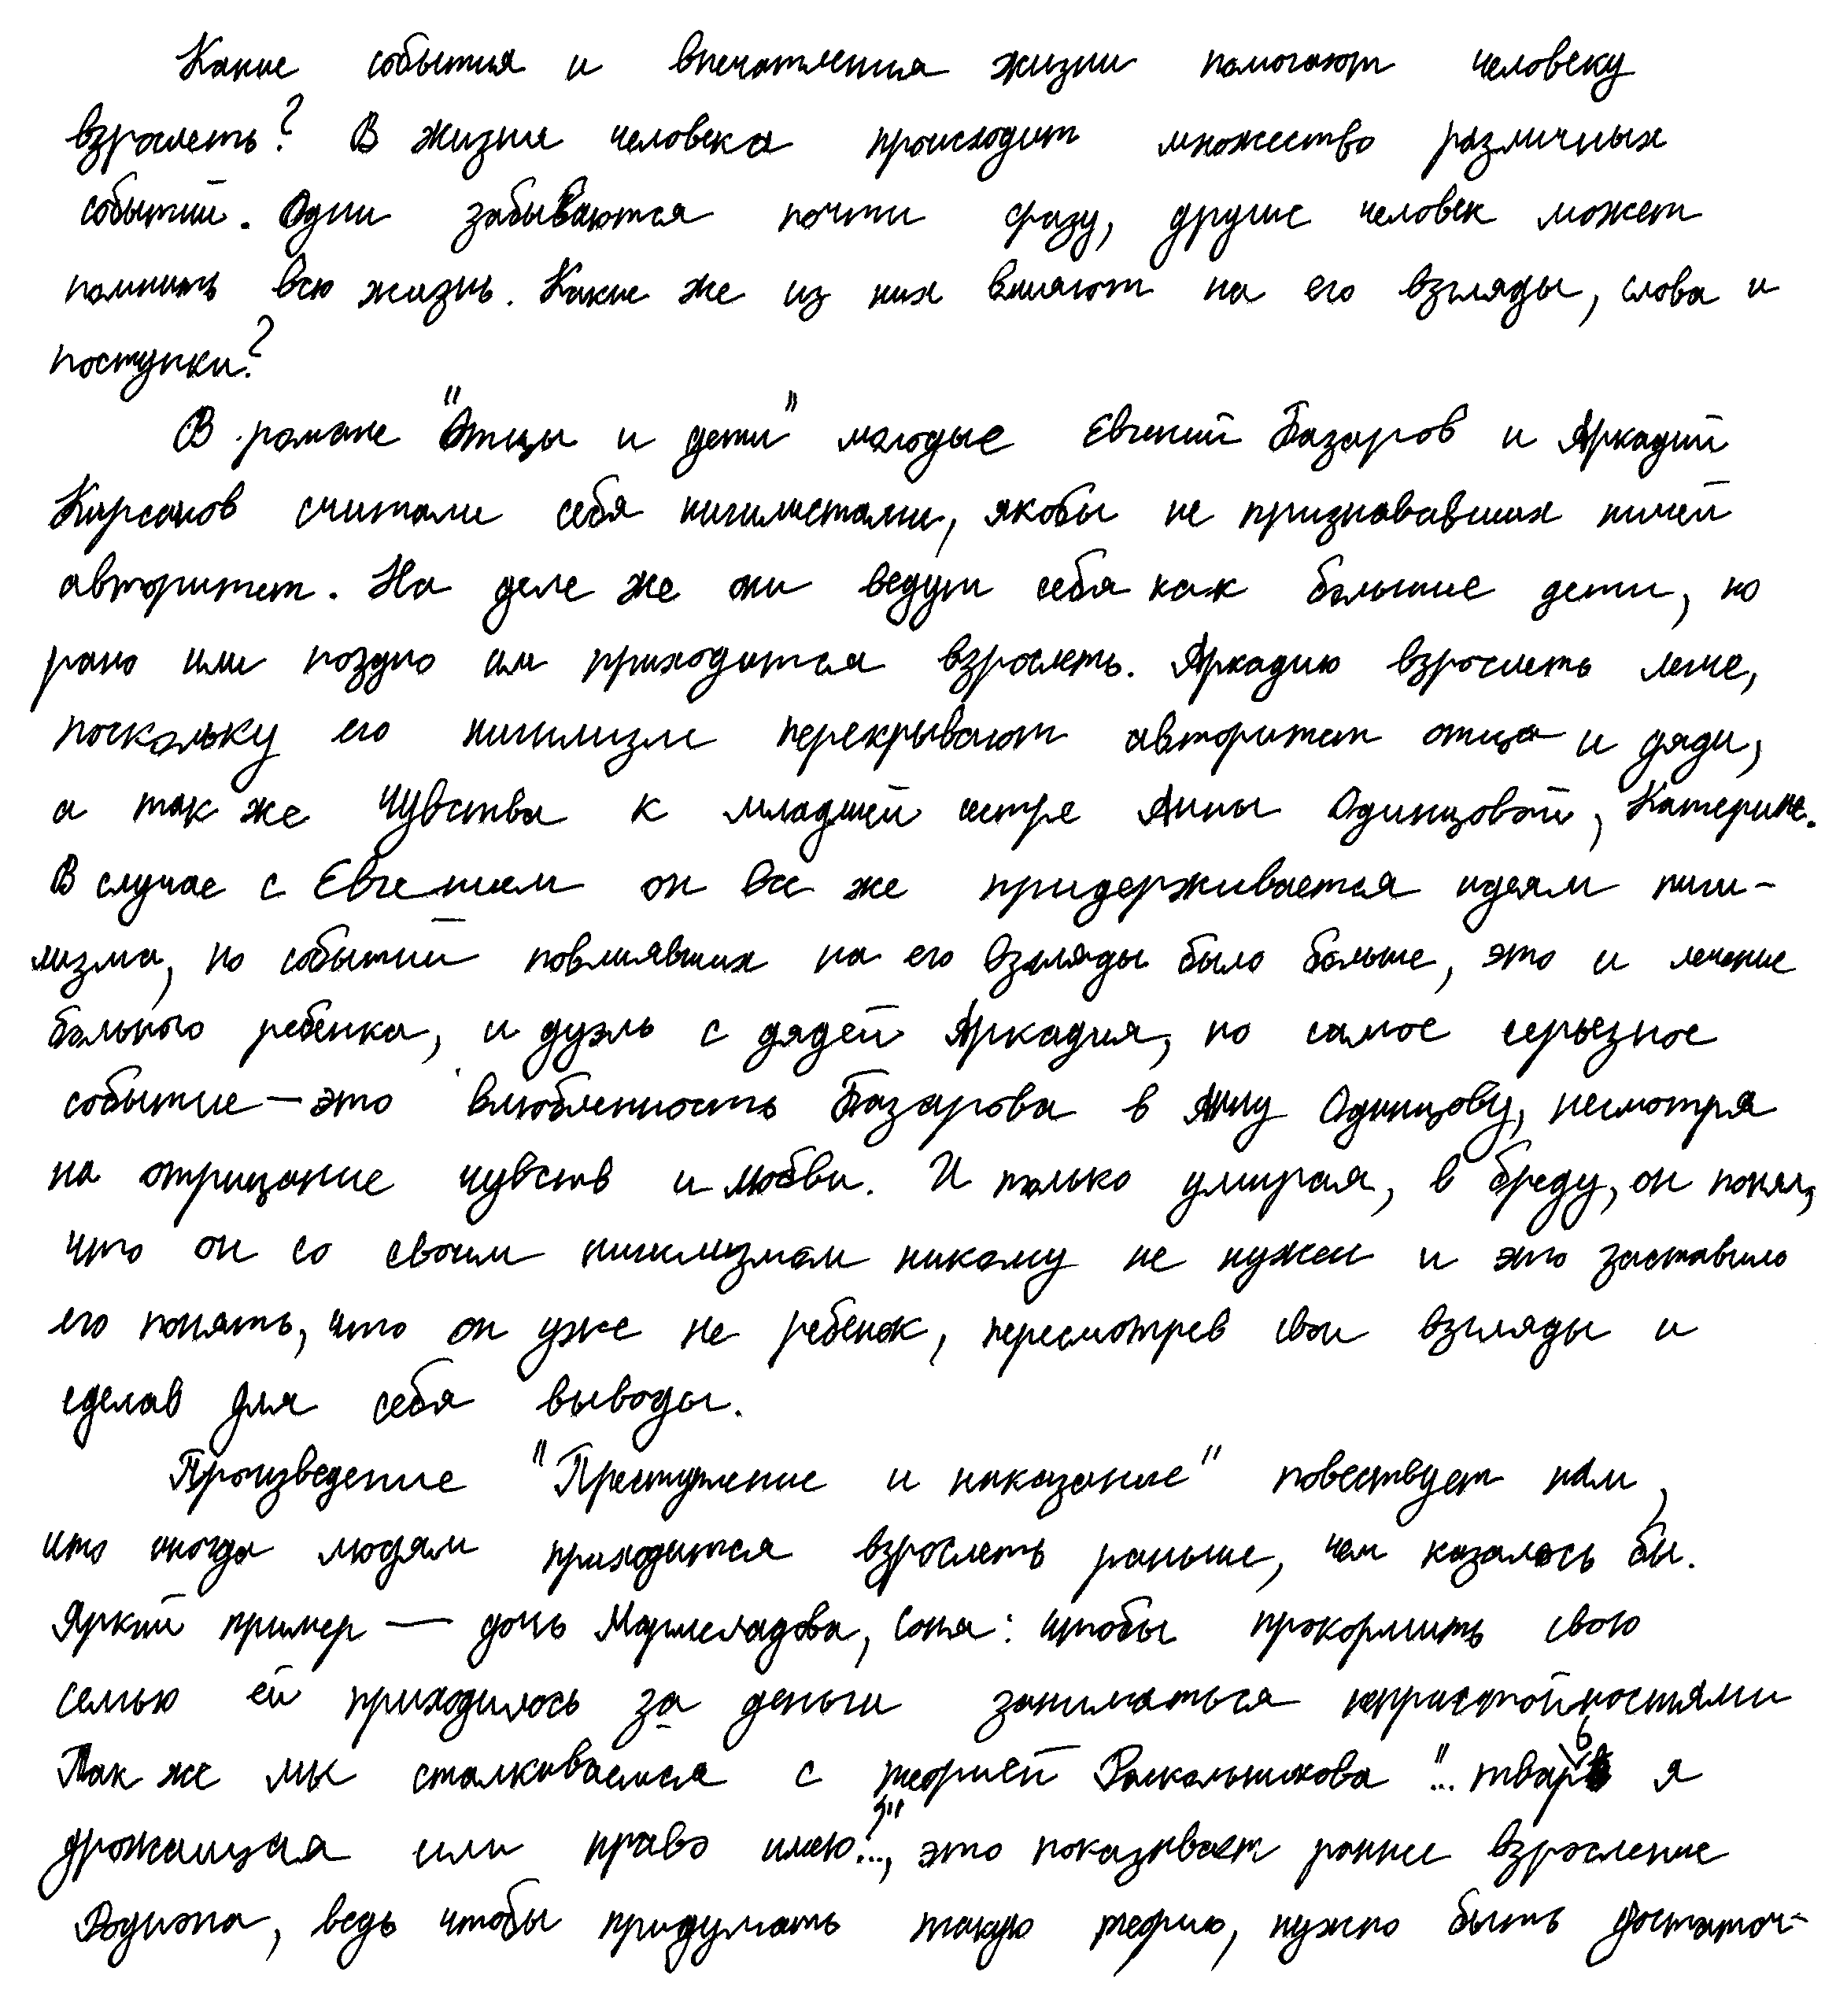 Какие события и впечатления жизни помогают человеку
взрослеть? В жизни человека происходит множество различных
событий. Одни забываются почти сразу, другие человек может
помнить всю жизнь. Какие же из них влияют на его взгляды, слова и
поступки?
В романе "Отцы и дети" молодые Евгений Базаров и Аркадий
Кирсанов считали себя нигилистами, якобы не признававших ничей
авторитет. На деле же они ведут себя как большие дети, но
рано или поздно им приходится взрослеть. Аркадию взрослеть легче,
поскольку его нигилизм перекрывают авторитет отца и дяди,
а так же чувства к младшей сестре Анны Одинцовой, Катерине.
В случае с Евгением он все же придерживается идеям ниги-
лизма, но событий повлиявших на его взгляды было больше, это и лечение
больного ребенка, и дуэль с дядей Аркадия, но самое серьезное
событие — это влюбленность Базарова в Анну Одинцову, несмотря
на отрицание чувств и любви. И только умирая, в бреду, он понял,
что он со своим нигилизмом никому не нужен и это заставило
его понять, что он уже не ребенок, пересмотрев свои взгляды и
сделав для себя выводы.
Произведение "Преступление и наказание" повествует нам,
что иногда людям приходится взрослеть раньше, чем казалось бы.
Яркий пример — дочь Мармеладова, Соня: чтобы прокормить свою
семью ей приходилось за деньги заниматься непристойностями
Так же мы сталкиваемся с теорией Раскольникова "... тварь я
дрожащая или право имею...", это показывает раннее взросление
Родиона, ведь чтобы придумать такую теорию, нужно быть достаточ-